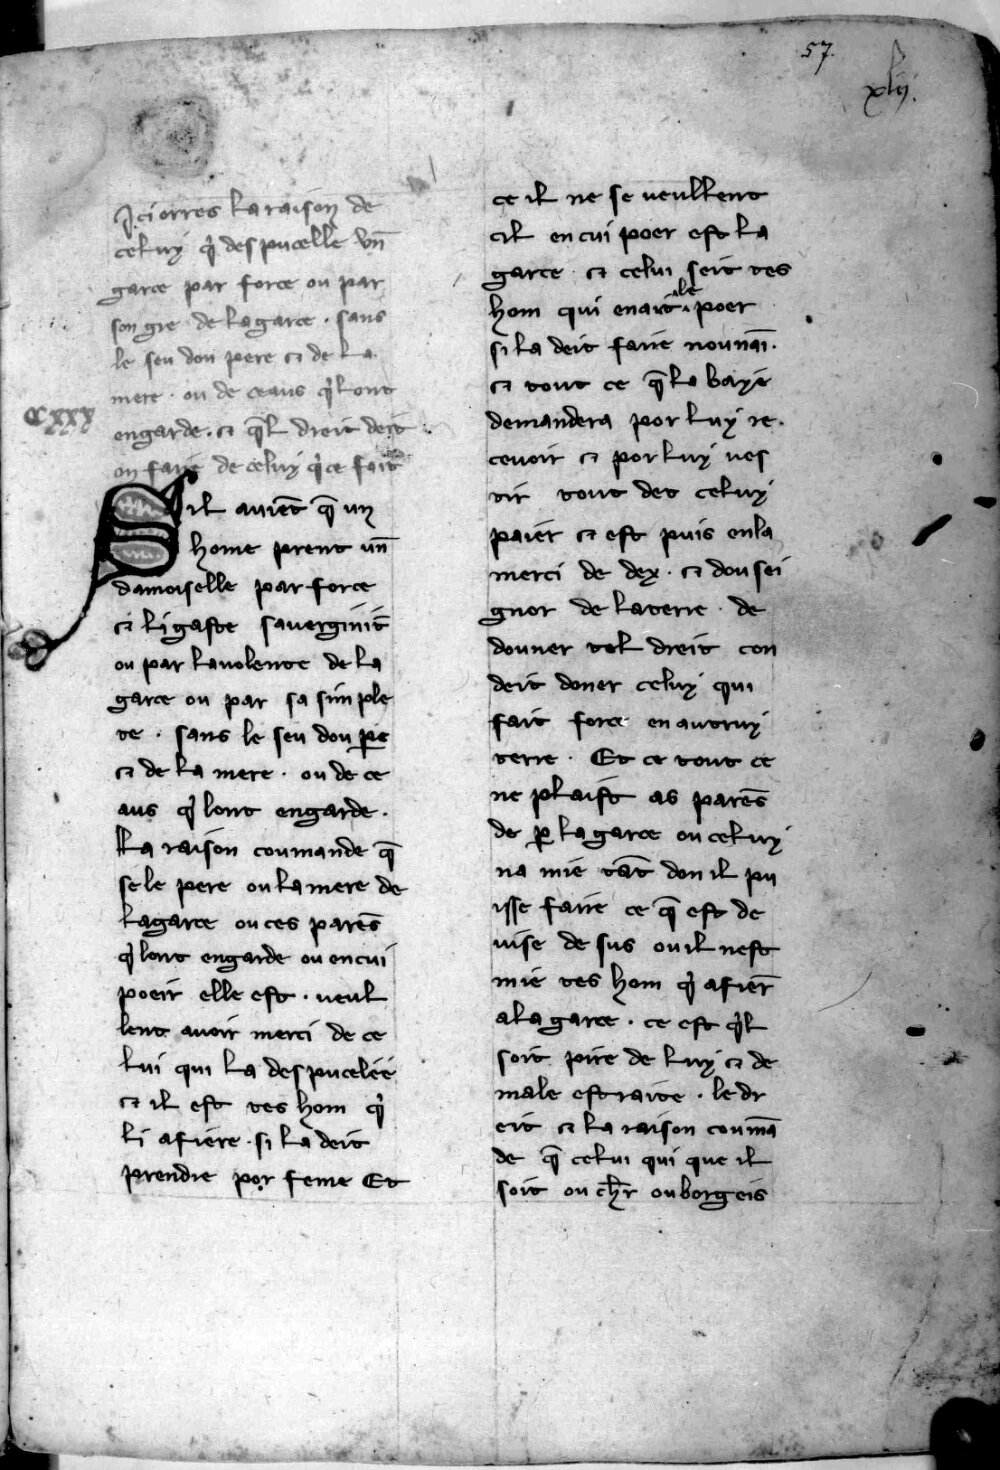 57.
xlij.
Ici orres la raison de
celuy q̇ despucelle vn̄
garce par force ou par
son gre de la garce . sans
le seu dou pere ⁊ de la
mere . ou de ceaus q̇ lont
CCxxx
engarde . ⁊ q̄l dreit deit
on faire de celuy q̇ ce fait
Sil auiēt q̄ un
home prent vn̄
damoiselle par force
⁊ li gaste sa uerginit̄
ou par la uolente de la
garce ou par sa simple
te . sans le seu dou ꝑe
⁊ de la mere . ou de ce
aus q̇ lont engarde .
La raison coumande q̄
se le pere ou la mere de
la garce ou ces parēs
q̇ lont engarde ou en cui
poeir elle est . ueul
lent auoir merci de ce
lui qui la despucelee
⁊ il est tes hom q̇
li afiere . si la deit
prendre por feme Et
ce il ne se ueullent
cil en cui poer est la
garce . ⁊ celui seit tes
hom qui en ait le poer
si la deit faire nounāi .
⁊ tout ce q̄ la baye
demandera por luy re .
ceuoir ⁊ por luy ues
tir tout det celuy
paier ⁊ est puis en la
merci de dex . ⁊ dou sei
gnor de la terre . de
douner tel dreit con
deit doner celuy qui
fait force en autruy
terre . Et ce tout ce
ne plaist as parēs
de ꝑ la garce ou celuy
na mie tāt don il pu
isse faire ce q̄ est de
uise de sus ou il nest
mie tes hom q̇ afier̄
a la garce . ce est q̇l
soit pire de luy ⁊ de
male estraite . le dr
eit ⁊ la raison coumā
de q̄ celui qui que il
soit ou ch̄r ou borgeis